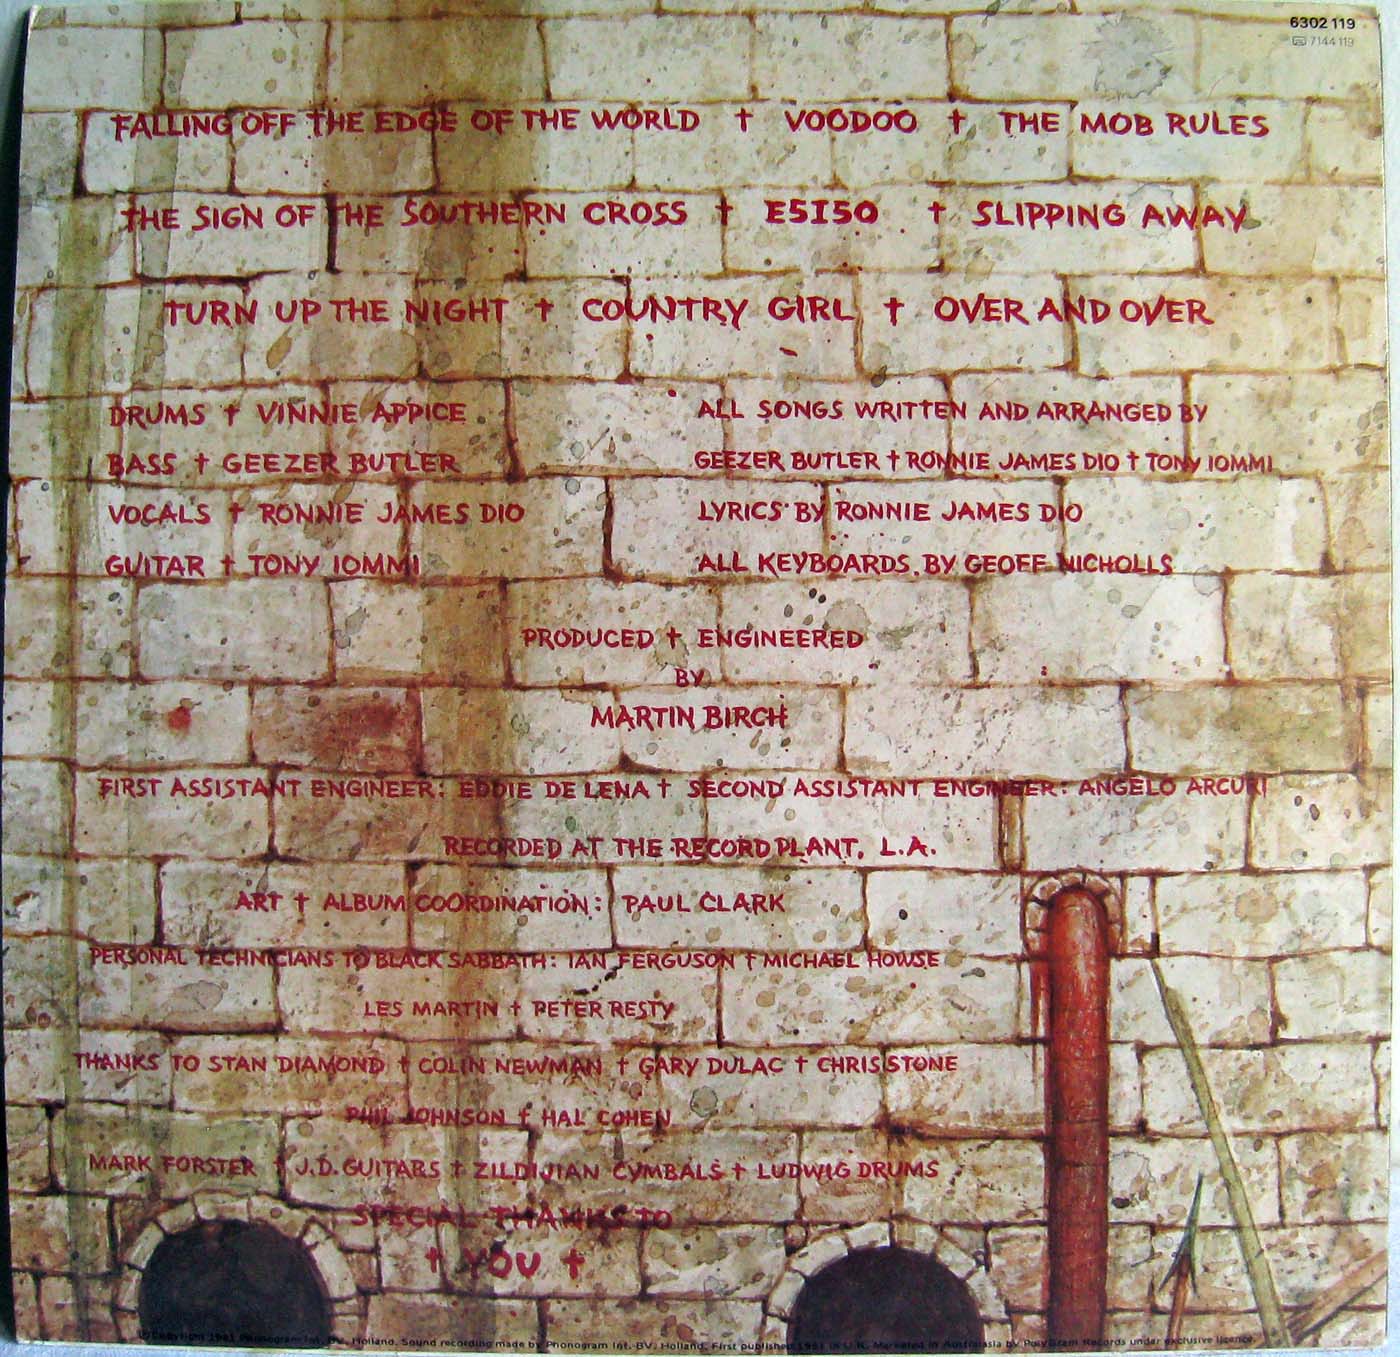 6302 119
7144 119
FALLING OFF THE EDGE OF THE WORLD † VOODOO † THE MOB RULES
THE SIGN OF THE SOUTHERN CROSS † E5150 † SLIPPING AWAY
TURN UP THE NIGHT † COUNTRY GIRL † OVER AND OVER
DRUMS † VINNIE APPICE
BASS † GEEZER BUTLER
VOCALS † RONNIE JAMES DIO
GUITAR † TONY IOMMI
ALL SONGS WRITTEN AND ARRANGED BY
GEEZER BUTLER † RONNIE JAMES DIO † TONY IOMMI
LYRICS BY RONNIE JAMES DIO
ALL KEYBOARDS BY GEOFF NICHOLLS
PRODUCED † ENGINEERED
BY
MARTIN BIRCH
FIRST ASSISTANT ENGINEER: EDDIE DE LENA † SECOND ASSISTANT ENGINEER: ANGELO ARCURI
RECORDED AT THE RECORD PLANT, L.A.
ART † ALBUM COORDINATION: PAUL CLARK
PERSONAL TECHNICIANS TO BLACK SABBATH: IAN FERGUSON † MICHAEL HOWSE
LES MARTIN † PETER RESTY
THANKS TO STAN DIAMOND † COLIN NEWMAN † GARY DULAC † CHRIS STONE
PHIL JOHNSON † HAL COHEN
MARK FORSTER † J.D. GUITARS † ZILDIJIAN CYMBALS † LUDWIG DRUMS
SPECIAL THANKS TO
† YOU †
Copyright 1981 Phonogram Int. BV. Holland. Sound recording made by Phonogram Int. BV. Holland. First published 1981 in U.K. Marketed in Australasia by PolyGram Records under exclusive licence.